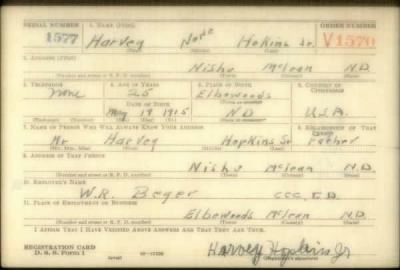 SERIAL NUMBER 1. NAME (Print) ORDER NUMBER
1577 Harvey None Hokins Jr. V1570
2. ADDRESS (Print)
Nishu McLean N.D.
3. TELEPHONE 4. AGE IN YEARS 5. PLACE OF BIRTH 6. COUNTRY OF CITIZENSHIP
None 25 Elbowoods
DATE OF BIRTH
May 19 1915 N.D. U.S.A.
7. NAME OF PERSON WHO WILL ALWAYS KNOW YOUR ADDRESS 8. RELATIONSHIP OF THAT PERSON
Mr Harvey Hopkins Sr Father
9. ADDRESS OF THAT PERSON
Nishu McLean N.D.
10. EMPLOYER'S NAME
W.R. Beyer CCC, I.D.
11. PLACE OF EMPLOYMENT OR BUSINESS
Elbowoods McLean N.D.
I AFFIRM THAT I HAVE VERIFIED ABOVE ANSWERS AND THAT THEY ARE TRUE.
REGISTRATION CARD
D. S. S. Form 1 Harvey Hopkins Jr